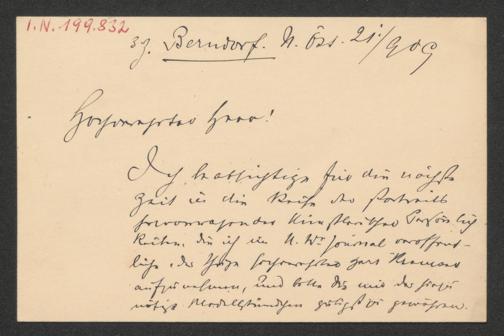 I.N. 199.832
zg. Berndorf. N. Öst. 21/9 09
Hochverehrter Herr!
Ich beabsichtige für die nächste
Zeit in die Reihe der Portraits
hervorragender Künstlerischer Persönlich
keiten, die ich im N. Wr Journal veröffent-
liche, die Ihre hochverehrter Herr
aufzunehmen, und bitte Sie mir das hiezu
nötige Modellstündchen gütigst zu gewähren.